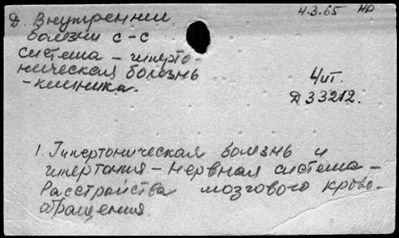 4.3.65 НР
Д. Внутренние
болезни с-с
система - гиперто-
ническая болезнь
- клиника.
4 ит.
Д 33212.
1. Гипертоническая болезнь и
гипертония - Нервная система -
Расстройства мозгового крово-
обращения.